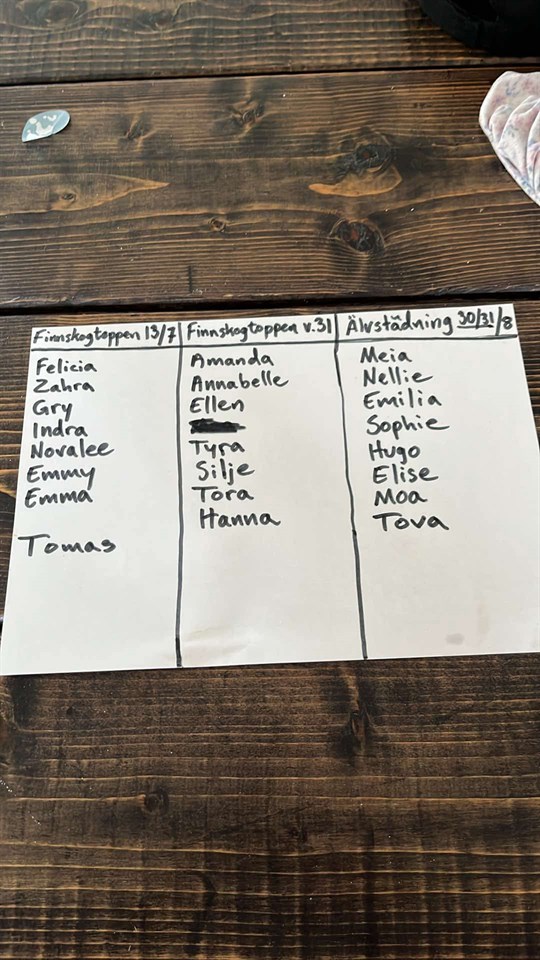 Finnskogtoppen 13/7
Felicia
Zahra
Gry
Indra
Novalee
Emmy
Emma
Tomas
Finnskogtoppen v.31
Amanda
Annabelle
Ellen
Tyra
Silje
Tora
Hanna
Älvstädning 30/31/8
Meia
Nellie
Emilia
Sophie
Hugo
Elise
Moa
Tova